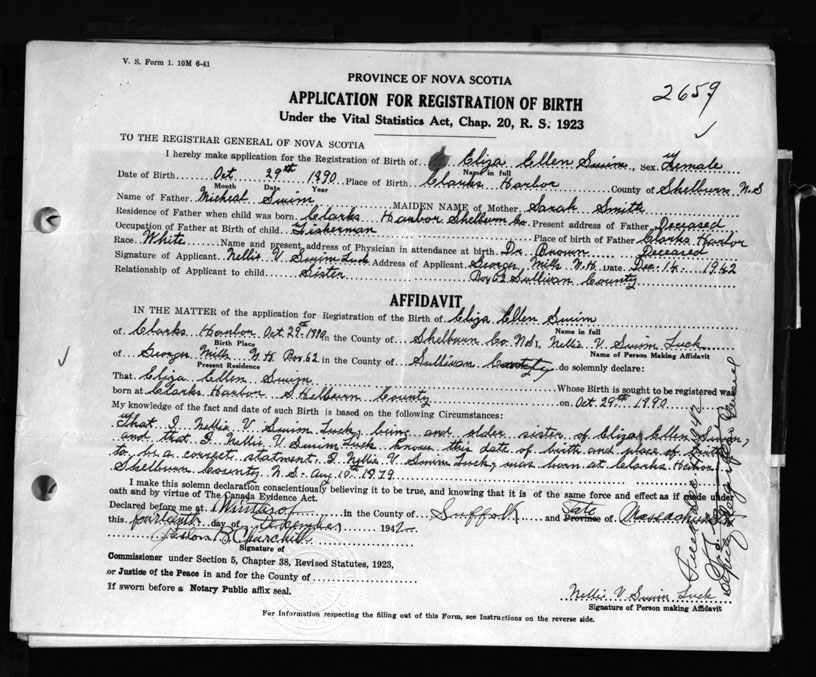 V. S. Form 1. 10M 6-41
PROVINCE OF NOVA SCOTIA
2659
APPLICATION FOR REGISTRATION OF BIRTH
Under the Vital Statistics Act, Chap. 20, R. S. 1923
TO THE REGISTRAR GENERAL OF NOVA SCOTIA
I hereby make application for the Registration of Birth of Eliza Ellen Swim, Sex Female
Name in full
Date of Birth Oct. 29th 1890 Place of Birth Clarks Harbor County of Shelburn N.S
Month Date Year
Name of Father Micheal Swim MAIDEN NAME of Mother Sarah Smith
Residence of Father when child was born Clarks Harbor Shelburn Co. Present address of Father Deceased
Occupation of Father at Birth of child Fisherman Place of birth of Father Clarks Harbor
Race White Name and present address of Physician in attendance at birth Dr Brown Deceased
Signature of Applicant Nellie V Swim Luck Address of Applicant Georges Mills N.H. Date Dec. 14 1942
Relationship of Applicant to child Sister Box 62 Sullivan County
AFFIDAVIT
IN THE MATTER of the application for Registration of the Birth of Eliza Ellen Swim
Name in full
of Clarks Harbor Oct. 29th 1890 in the County of Shelburn Co. N.S. I, Nellie V. Swim Luck
Birth Place
Name of Person Making Affidavit
of Georges Mills N.H. Box 62 in the County of Sullivan County do solemnly declare:
Present Residence
That Eliza Ellen Swim Whose Birth is sought to be registered was
born at Clarks Harbor Shelburn County on Oct. 29th 1890
My knowledge of the fact and date of such Birth is based on the following Circumstances:
That I Nellie V Swim Luck, being and older sister of Eliza Ellen Swim,
and that I Nellie V. Swim Luck know this date of birth and place of birth
to be a correct statment. I Nellie V Swim Luck, was born at Clarks Harbor
Shelburn County N.S. Aug 10th 1879
I make this solemn declaration conscientiously believing it to be true, and knowing that it is of the same force and effect as if made under
oath and by virtue of The Canada Evidence Act.
Declared before me at Winthrop in the County of Suffolk and State Province of Massachusetts
this fourteenth day of December 1942
B Churchill
Signature of
Commissioner under Section 5, Chapter 38, Revised Statutes, 1923,
or Justice of the Peace in and for the County of
If sworn before a Notary Public affix seal.
Nellie V Swim Luck
Signature of Person making Affidavit
For Information respecting the filling out of this Form, see Instructions on the reverse side.